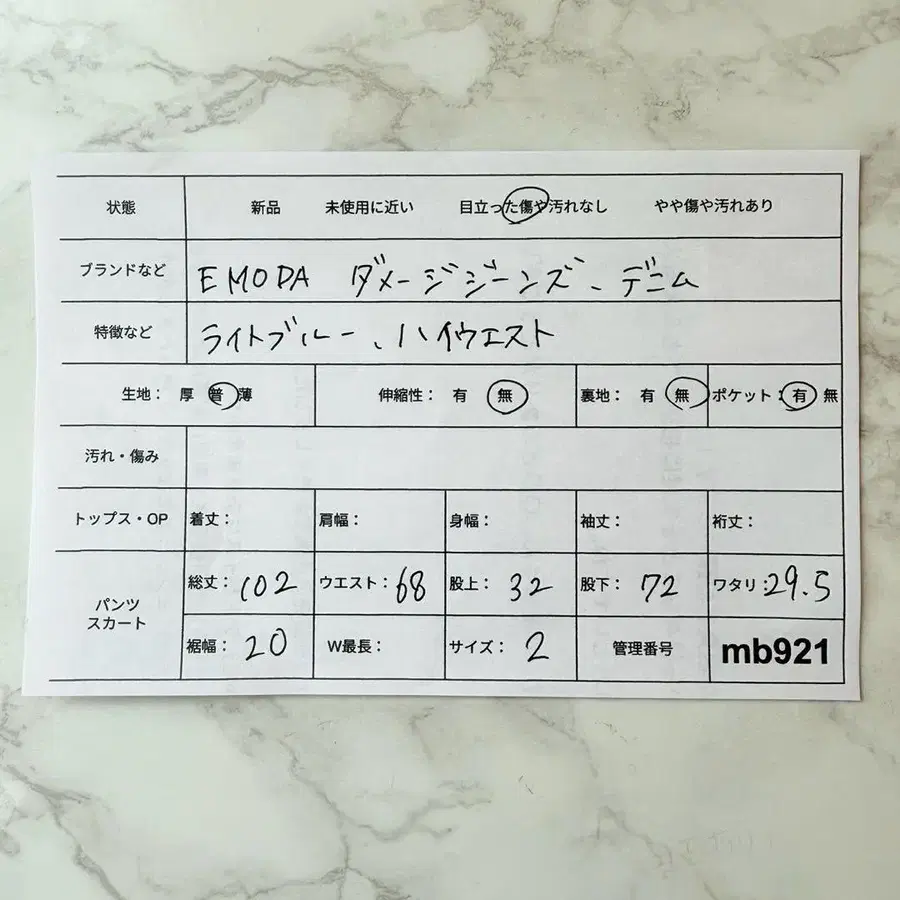 状態 新品 未使用に近い 目立った傷や汚れなし やや傷や汚れあり
ブランドなど EMODA ダメージジーンズ、デニム
特徴など ライトブルー、ハイウエスト
生地： 厚 普 薄 伸縮性： 有 無 裏地： 有 無 ポケット： 有 無
汚れ・傷み
トップス・OP 着丈： 肩幅： 身幅： 袖丈： 裄丈：
パンツ
スカート
総丈： 102 ウエスト： 68 股上： 32 股下： 72 ワタリ： 29.5
裾幅： 20 W最長： サイズ： 2 管理番号 mb921